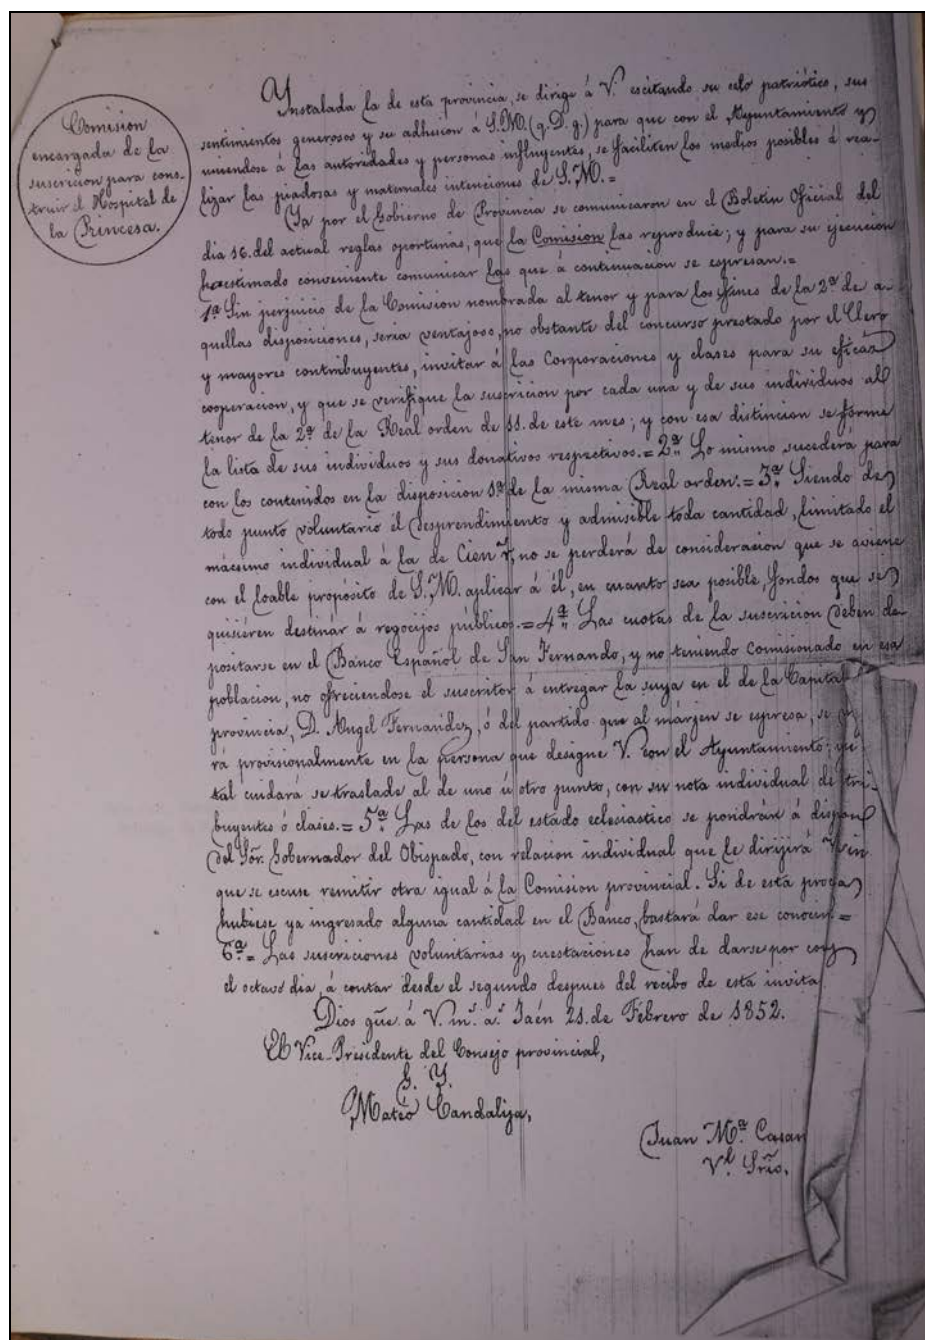 Comision
encargada de la
suscricion para cons-
truir el Hospital de
la Princesa.
Ynstalada la de esta provincia, se dirige á V. escitando su celo patriótico, sus
sentimientos generosos y su adhesion á S.M. (q. D. g.) para que con el Ayuntamiento y
uniendose á las autoridades y personas influyentes, se faciliten los medios posibles á rea-
lizar las piadosas y maternales intenciones de S.M. =
Ya por el Gobierno de Provincia se comunicaron en el Boletin Oficial del
dia 16. del actual reglas oportunas, que la Comision las reproduce; y para su ejecucion
ha estimado conveniente comunicar las que á continuacion se espresan. =
1ª Sin perjuicio de la Comision nombrada al tenor y para los fines de la 2ª de a-
quellas disposiciones, seria ventajoso, no obstante del concurso prestado por el Clero
y mayores contribuyentes, invitar á las Corporaciones y clases para su eficaz
cooperacion, y que se verifique la suscricion por cada una y de sus individuos al
tenor de la 2ª de la Real orden de 11. de este mes; y con esa distincion se forme
la lista de sus individuos y sus donativos respectivos. = 2ª Lo mismo sucederá para
con los contenidos en la disposicion 1ª de la misma Real orden. = 3ª Siendo de
todo punto voluntario el desprendimiento y admisible toda cantidad, limitado el
mácsimo individual á la de Cien no se perderá de consideracion que se aviene
con el loable propósito de S.M. aplicar á él, en cuanto sea posible, fondos que se
quisiéren destinar á regocijos públicos. = 4ª Las cuotas de la suscricion deben de-
positarse en el Banco Español de San Fernando, y no teniendo Comisionado en esa
poblacion, no ofreciendose el suscritor á entregar la suya en el de la Capital
provincia, D. Angel Fernandez, ó del partido que al márjen se espresa, se
rá provisionalmente en la persona que designe V. con el Ayuntamiento;
tal cuidará se traslade al de uno ú otro punto, con su nota individual de tri-
buyentes ó clases. = 5ª Las de los del estado eclesiastico se pondrán á dispon
del Sõr. Gobernador del Obispado, con relacion individual que le dirijirá V. sin
que se escuse remitir otra igual á la Comision provincial. Si de esta
hubiese ya ingresado alguna cantidad en el Banco, bastará dar ese conocim =
6ª = Las suscriciones voluntarias y cuestaciones han de darse por
el octavo dia, á contar desde el segundo despues del recibo de esta invita
Dios gũe. á V. m.s a.s Jaén 21. de Febrero de 1852.
El Vice-Presidente del Consejo provincial,
G. Y.
Mateo Candalija,
Juan M.ª Casan
V.l Srio.